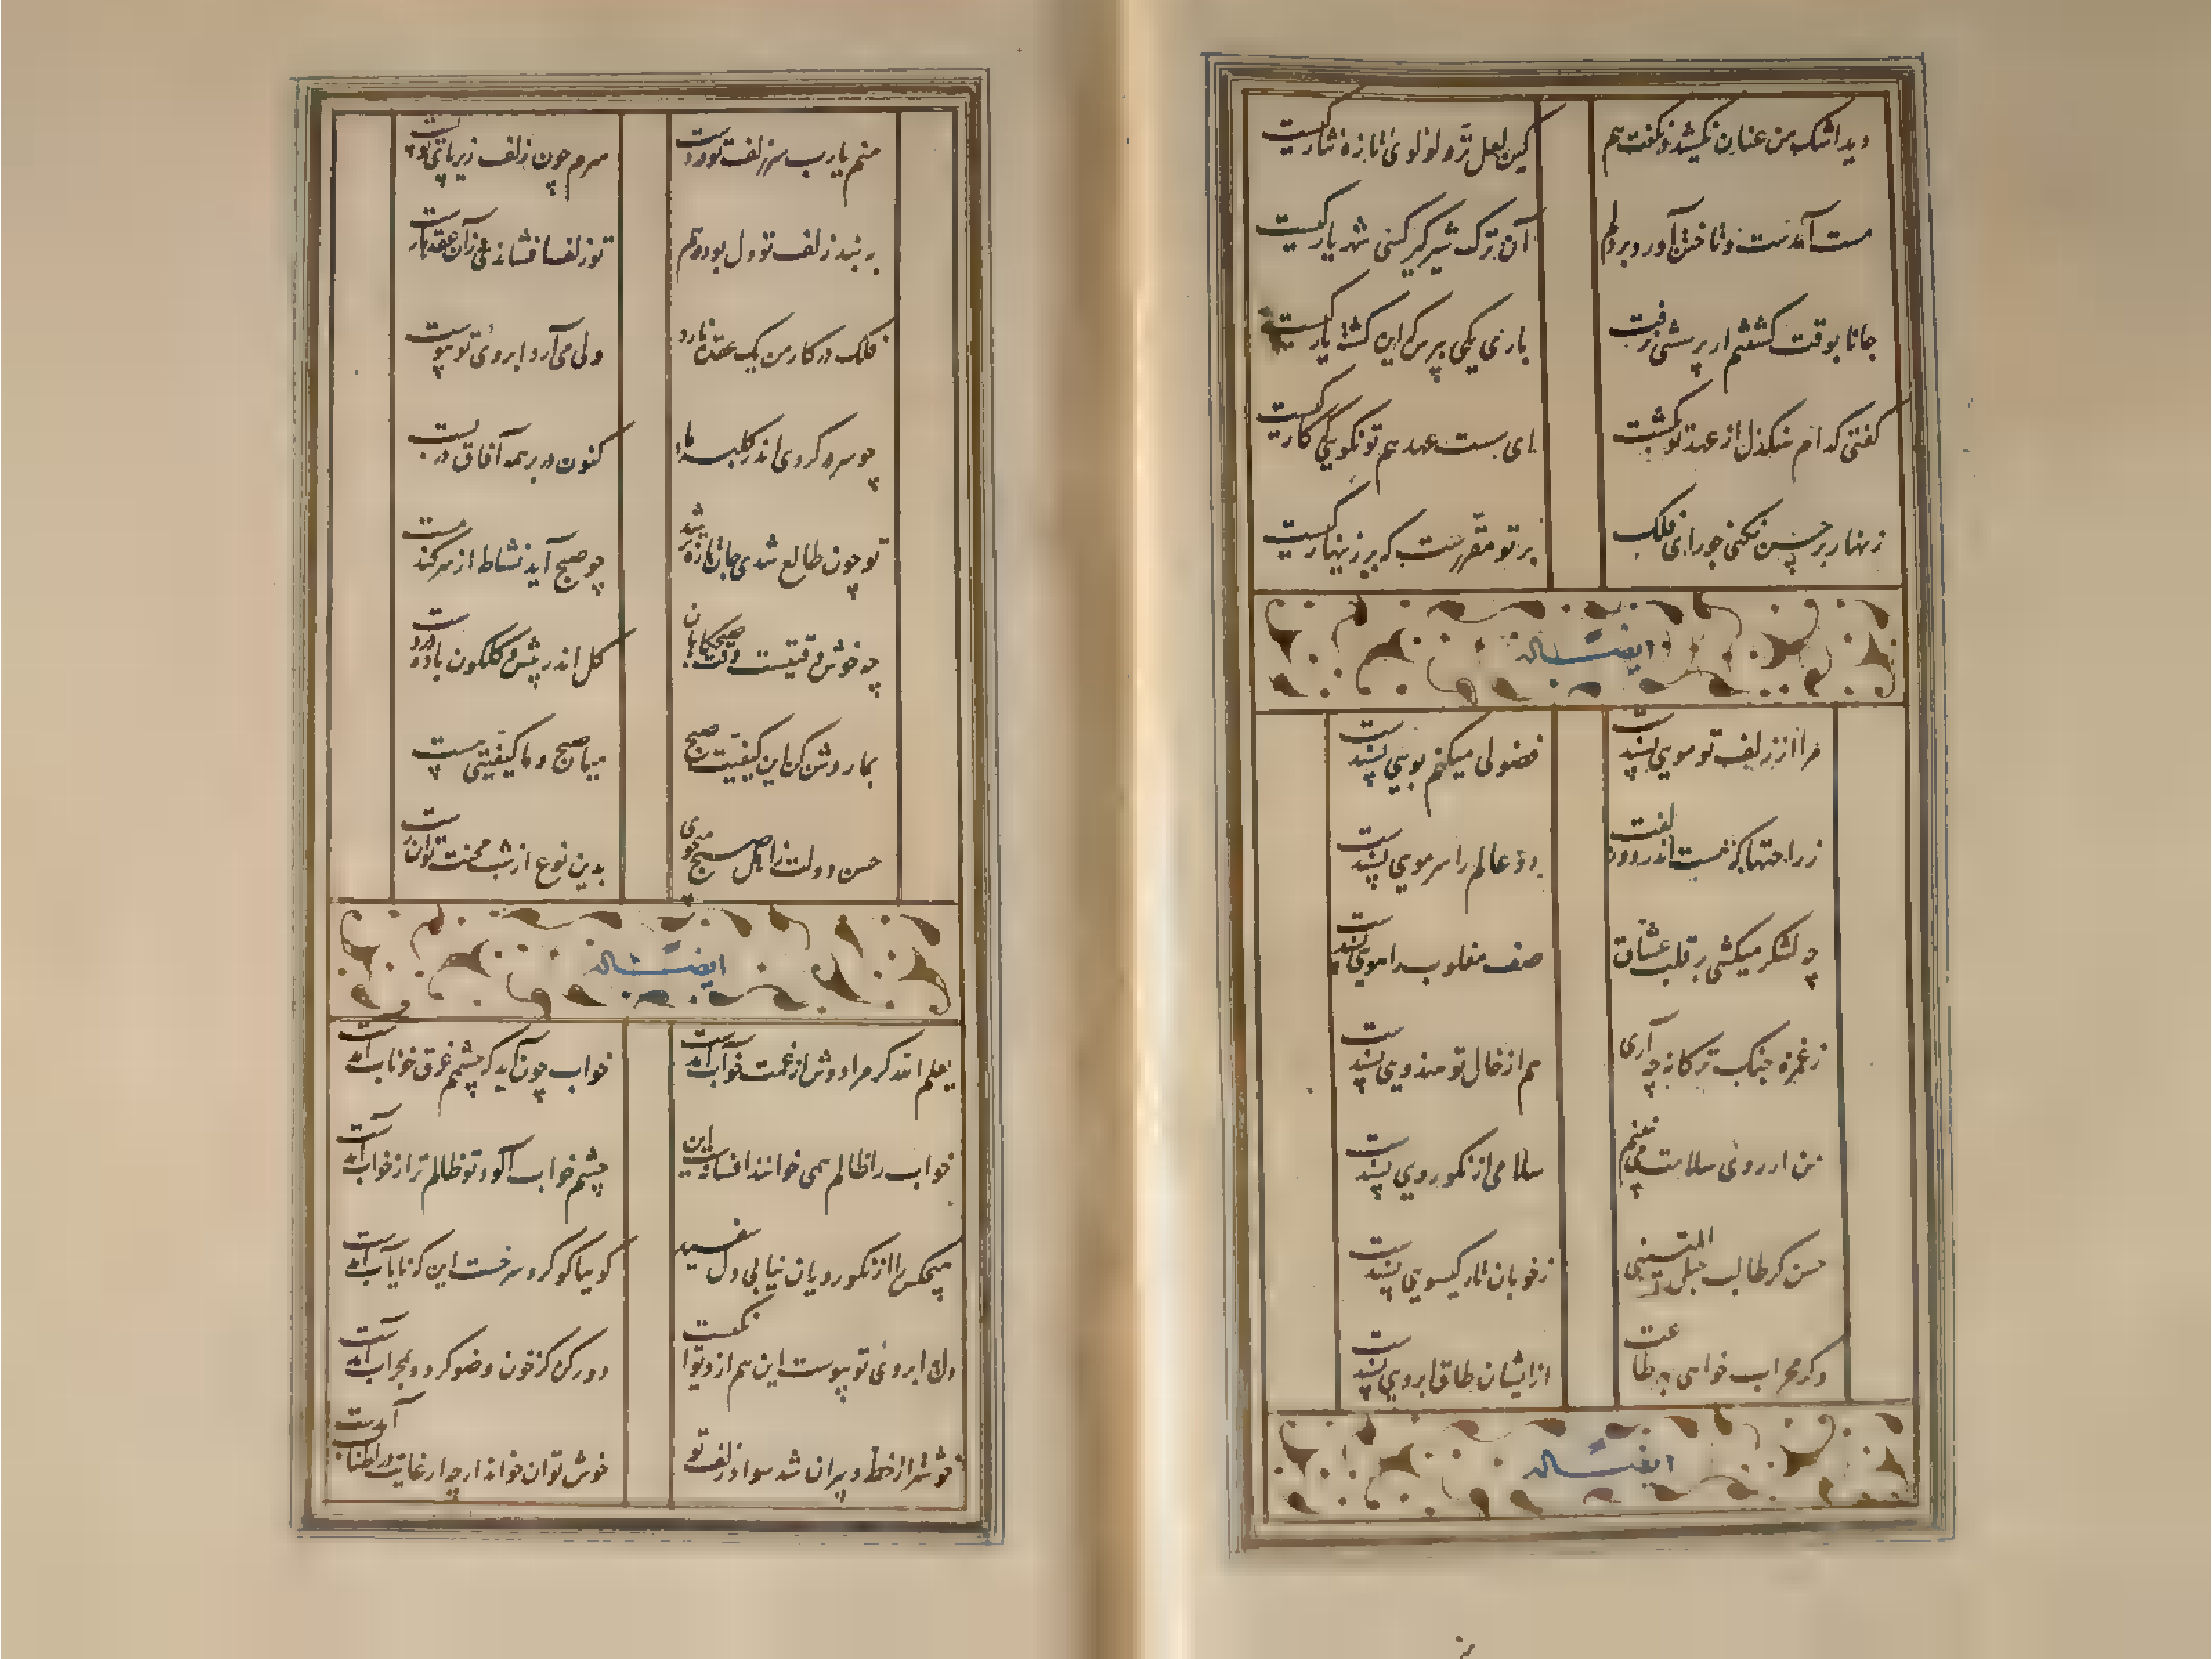 دید اشک من عنان نکشید و نگفت هم
کین لعل تر و لولوی تازه نثار کیست
مست آمدست و تاختن آورد بر دلم
آن ترک شیرگیر کسی شهریار کیست
جانا بوقت کشتنم ار پرسشی نرفت
باری یکی بپرس که این کشته یار کیست
گفتی کدام سنکدل از عهد تو بگشت
ای سست عهد هم تو نکویی که کار کیست
زنهار بر حسن نکنی جور ای فلک
بر تو مقررست که در زینهار کیست
ایضا له
مرا از زلف تو مویی پسندست
فضولی میکنم بویی پسندست
زراحتها که
دو عالم را سر مویی پسندست
چه لشکر میکشی بر قلب عشاق
صف مغلوب را هویی پسندست
ز غمزه جنک ترکانه چه آری
هم از خال تو هندویی پسندست
من از روی سلامت می
سلامی از نکورویی پسندست
حسن کر طالب حبل المتینی
ز خوبان تار کیسویی پسندست
وکر محراب خواهی به طاعت
از ایشان طاق ابرویی پسندست
ایضا له
منم یا رب سر زلف تو در دست
سرم چون زلف زیر پای تو پست
به بند زلف تو دل بود و دینم
تو زلف افشاندی زان عقد بار
فلک در کار من یک عقده نارد
ولی می آرد ابروی تو پیوست
چو سر در کردی اندر کلبه ما
کنون در بر همه آفاق در بست
تو چون طالع شدی جان تازه تر شد
چو صبح آید نشاط از سر کند مست
چه خوش وقتیست وقت صبحکاهان
کل اندر پیش و کلکون باده در دست
بما روشن کن این کیفیت صبح
میان صبح و ما کیفیتی هست
حسن دولت ز اهل صبح
بدین نوع از شب محنت توان رست
ایضا له
یعلم الله کر مرا دوش از غمت خواب آمدست
خواب چون آید که چشمم غرق خوناب آمدست
خواب را ظالم همی خوانند افسانست این
چشم خواب آلود تو ظالم تر از خواب آمدست
هیچکس را از نکورویان نیابی دل سفید
کوییا کوکرد سرخست این که نایاب آمدست
دل در ابروی تو پیوست این هم از
دور کن کز خون وضو کرد و بمحراب آمدست
خوشتر از خط دبیران شد سواد زلف تو
خوش توان خواند ار چه از غایت در اطناب آمدست